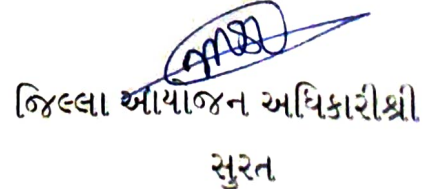 જિલ્લા આયોજન અધિકારીશ્રી
સુરત